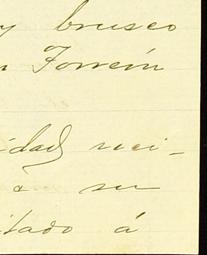 y brusco
n Torreón
idad reci-
a su
itado á